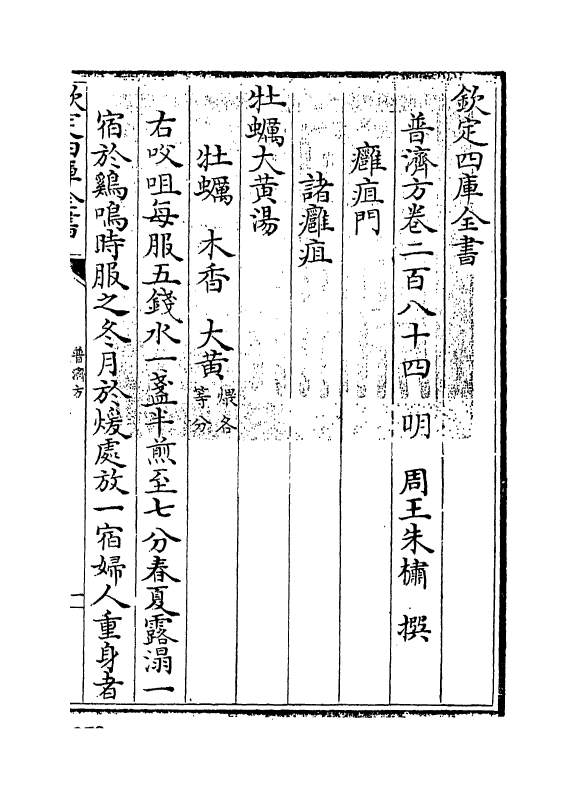 欽定四庫全書
普濟方卷二百八十四 明 周王朱橚 撰
癰疽門
諸癰疽
牡蠣大黄湯
牡蠣 木香 大黄煨各等分
右㕮咀每服五錢水一盞半煎至七分春夏露溻一
宿於鷄鳴時服之冬月於煖處放一宿婦人重身者
欽定四庫全書
普濟方